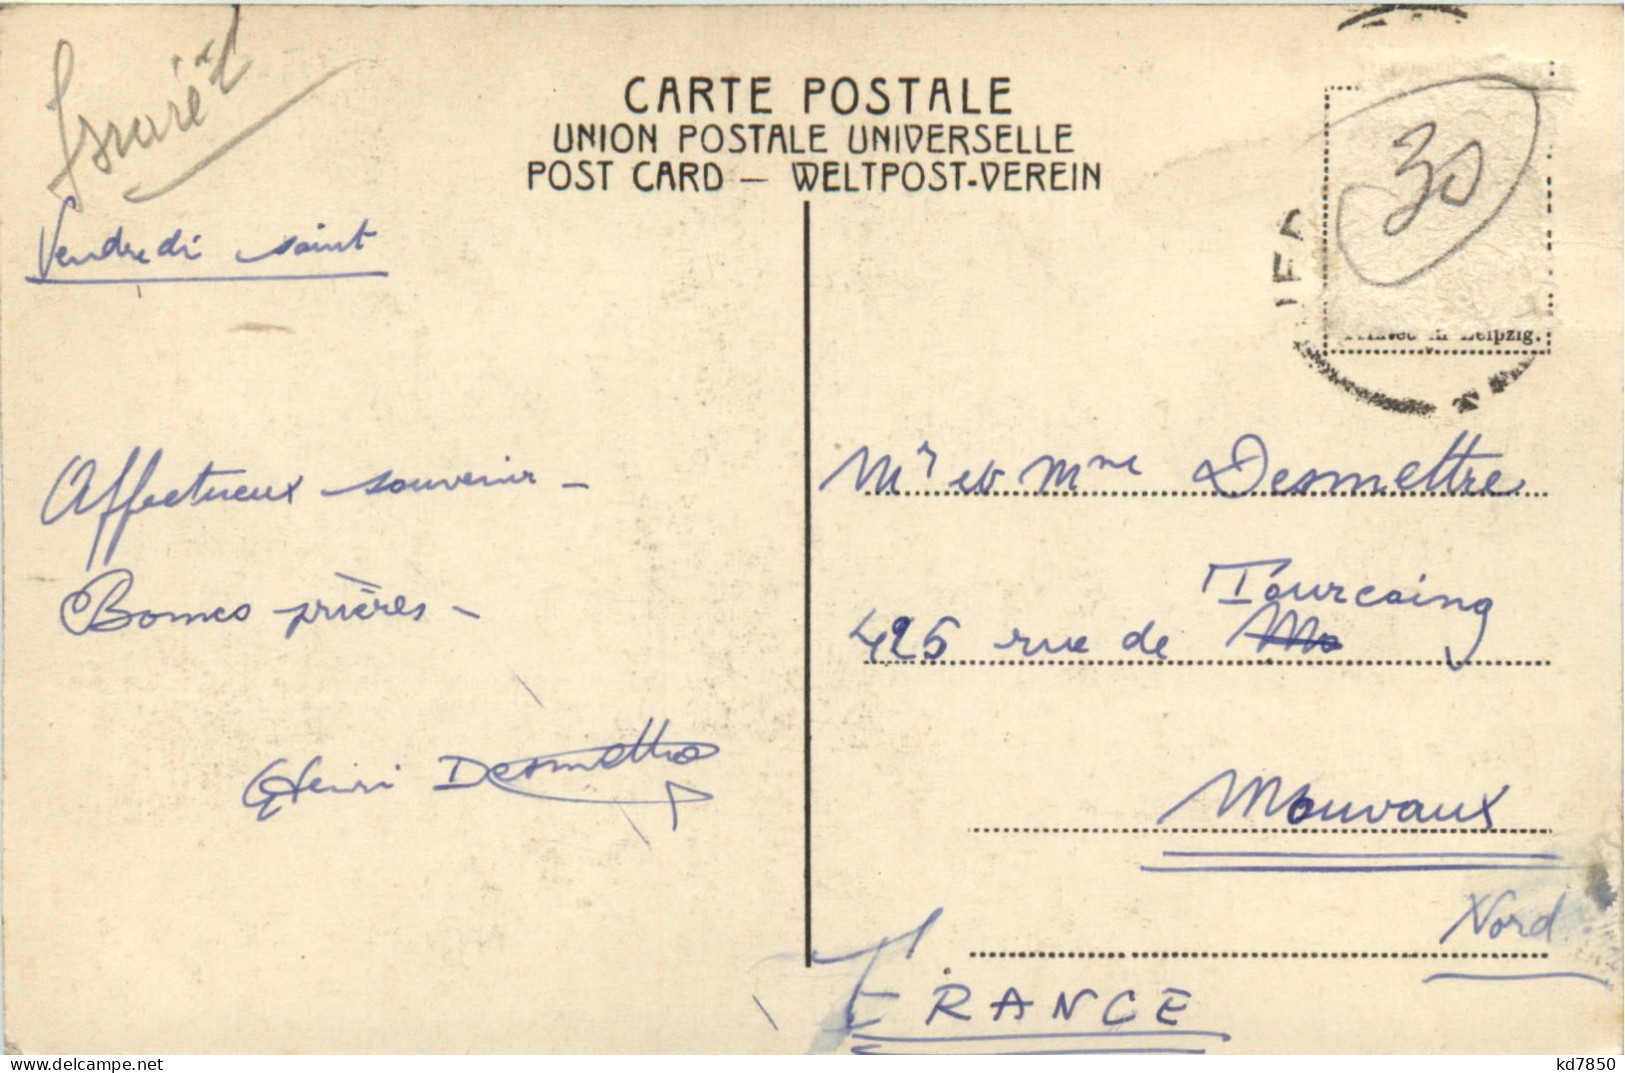 Israël
CARTE POSTALE
UNION POSTALE UNIVERSELLE
POST CARD — WELTPOST-VEREIN
30
IFA
Printed in Leipzig.
Vendredi saint
Affectueux souvenir -
Bonnes prières -
Henri Desmettre
Mr et Mme Desmettre
Tourcoing
425 rue de
Mouvaux
Nord
FRANCE
delcampe.net
kd7850